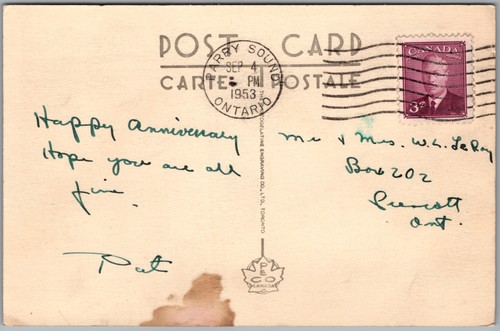 POST CARD
CARTE POSTALE
PARRY SOUND
SEP 4
PM
1953
ONTARIO
CANADA
3¢
Happy Anniversary
Hope you are all
fine.
Pat
Mr & Mrs. W. L. LeRoy
Box 202
Prescott
Ont.
ENGRAVING CO., LTD., TORONTO
P E
CO
CANADA